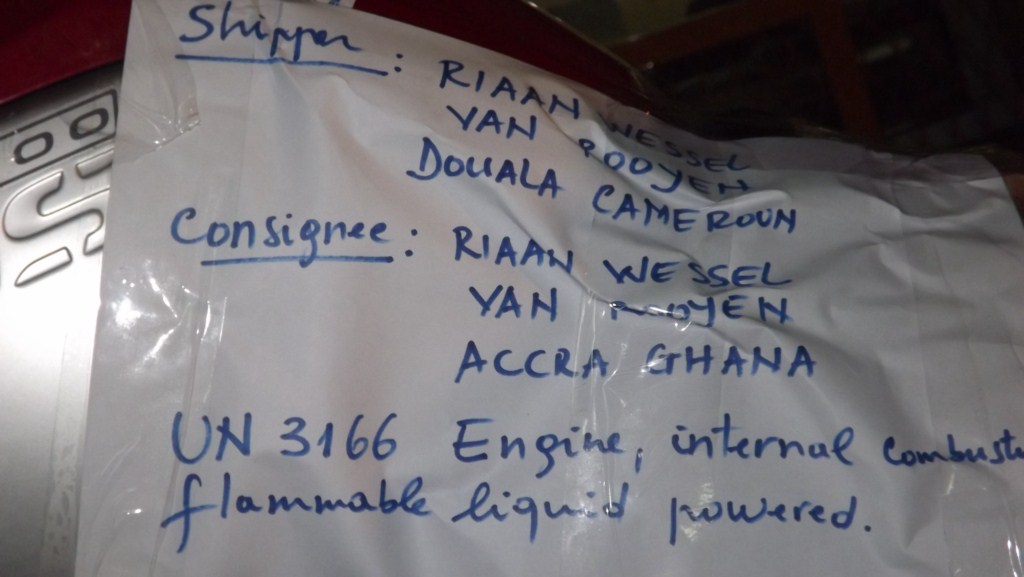 Shipper :
RIAAN WESSEL
VAN ROOYEN
DOUALA CAMEROUN
Consignee : RIAAN WESSEL
VAN ROOYEN
ACCRA GHANA
UN 3166 Engine, internal combust
flammable liquid powered.